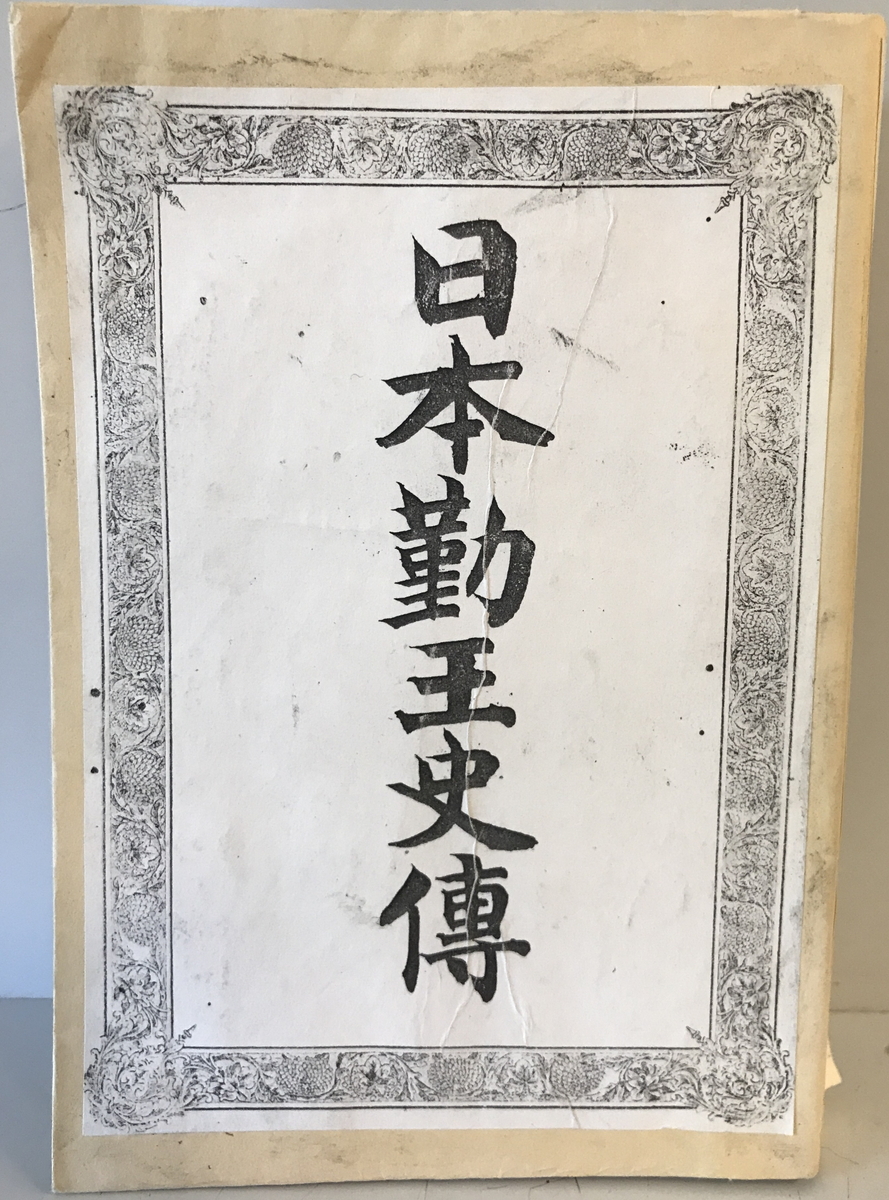 日本勤王史傳